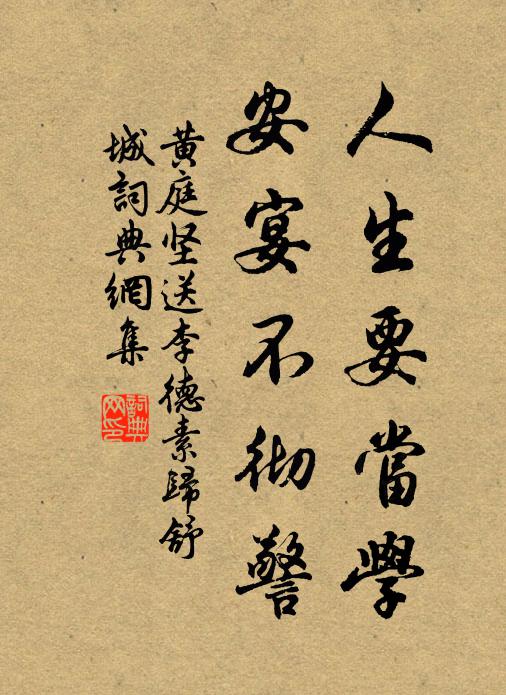 人生要當學
安宴不彻警
黄庭坚送李德素歸舒
城詞典網集
詞典
网印